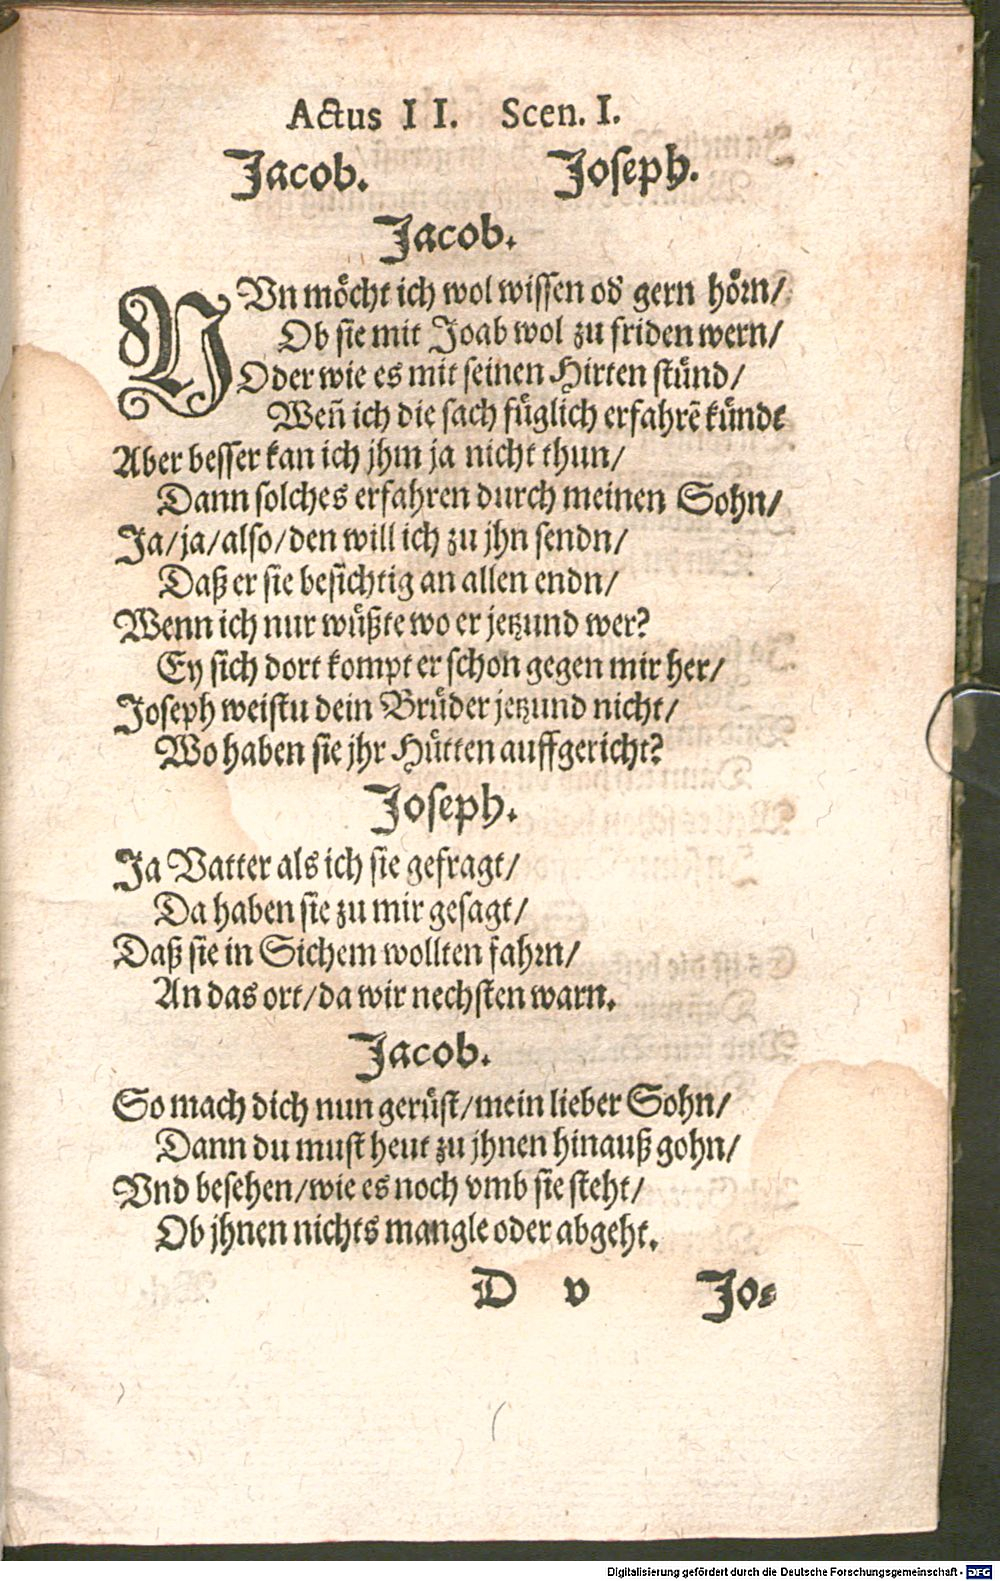 Actus II. Scen. I.
Jacob. Joseph.
Jacob.
NVn möcht ich wol wissen od gern hörn/
Ob sie mit Joab wol zu friden wern/
Oder wie es mit seinen Hirten stünd/
Weñ ich die sach füglich erfahrē künde
Aber besser kan ich jhm ja nicht thun/
Dann solches erfahren durch meinen Sohn/
Ja/ja/also/den will ich zu jhn sendn/
Daß er sie besichtig an allen endn/
Wenn ich nur wüßte wo er jetzund wer?
Ey sich dort kompt er schon gegen mir her/
Joseph weistu dein Brüder jetzund nicht/
Wo haben sie jhr Hütten auffgericht?
Joseph.
Ja Vatter als ich sie gefragt/
Da haben sie zu mir gesagt/
Daß sie in Sichem wollten fahrn/
An das ort/da wir nechsten warn.
Jacob.
So mach dich nun gerüst/mein lieber Sohn/
Dann du must heut zu jhnen hinauß gohn/
Vnd besehen/wie es noch vmb sie steht/
Ob jhnen nichts mangle oder abgeht.
D v Jo⸗
Digitalisierung gefördert durch die Deutsche Forschungsgemeinschaft - DFG